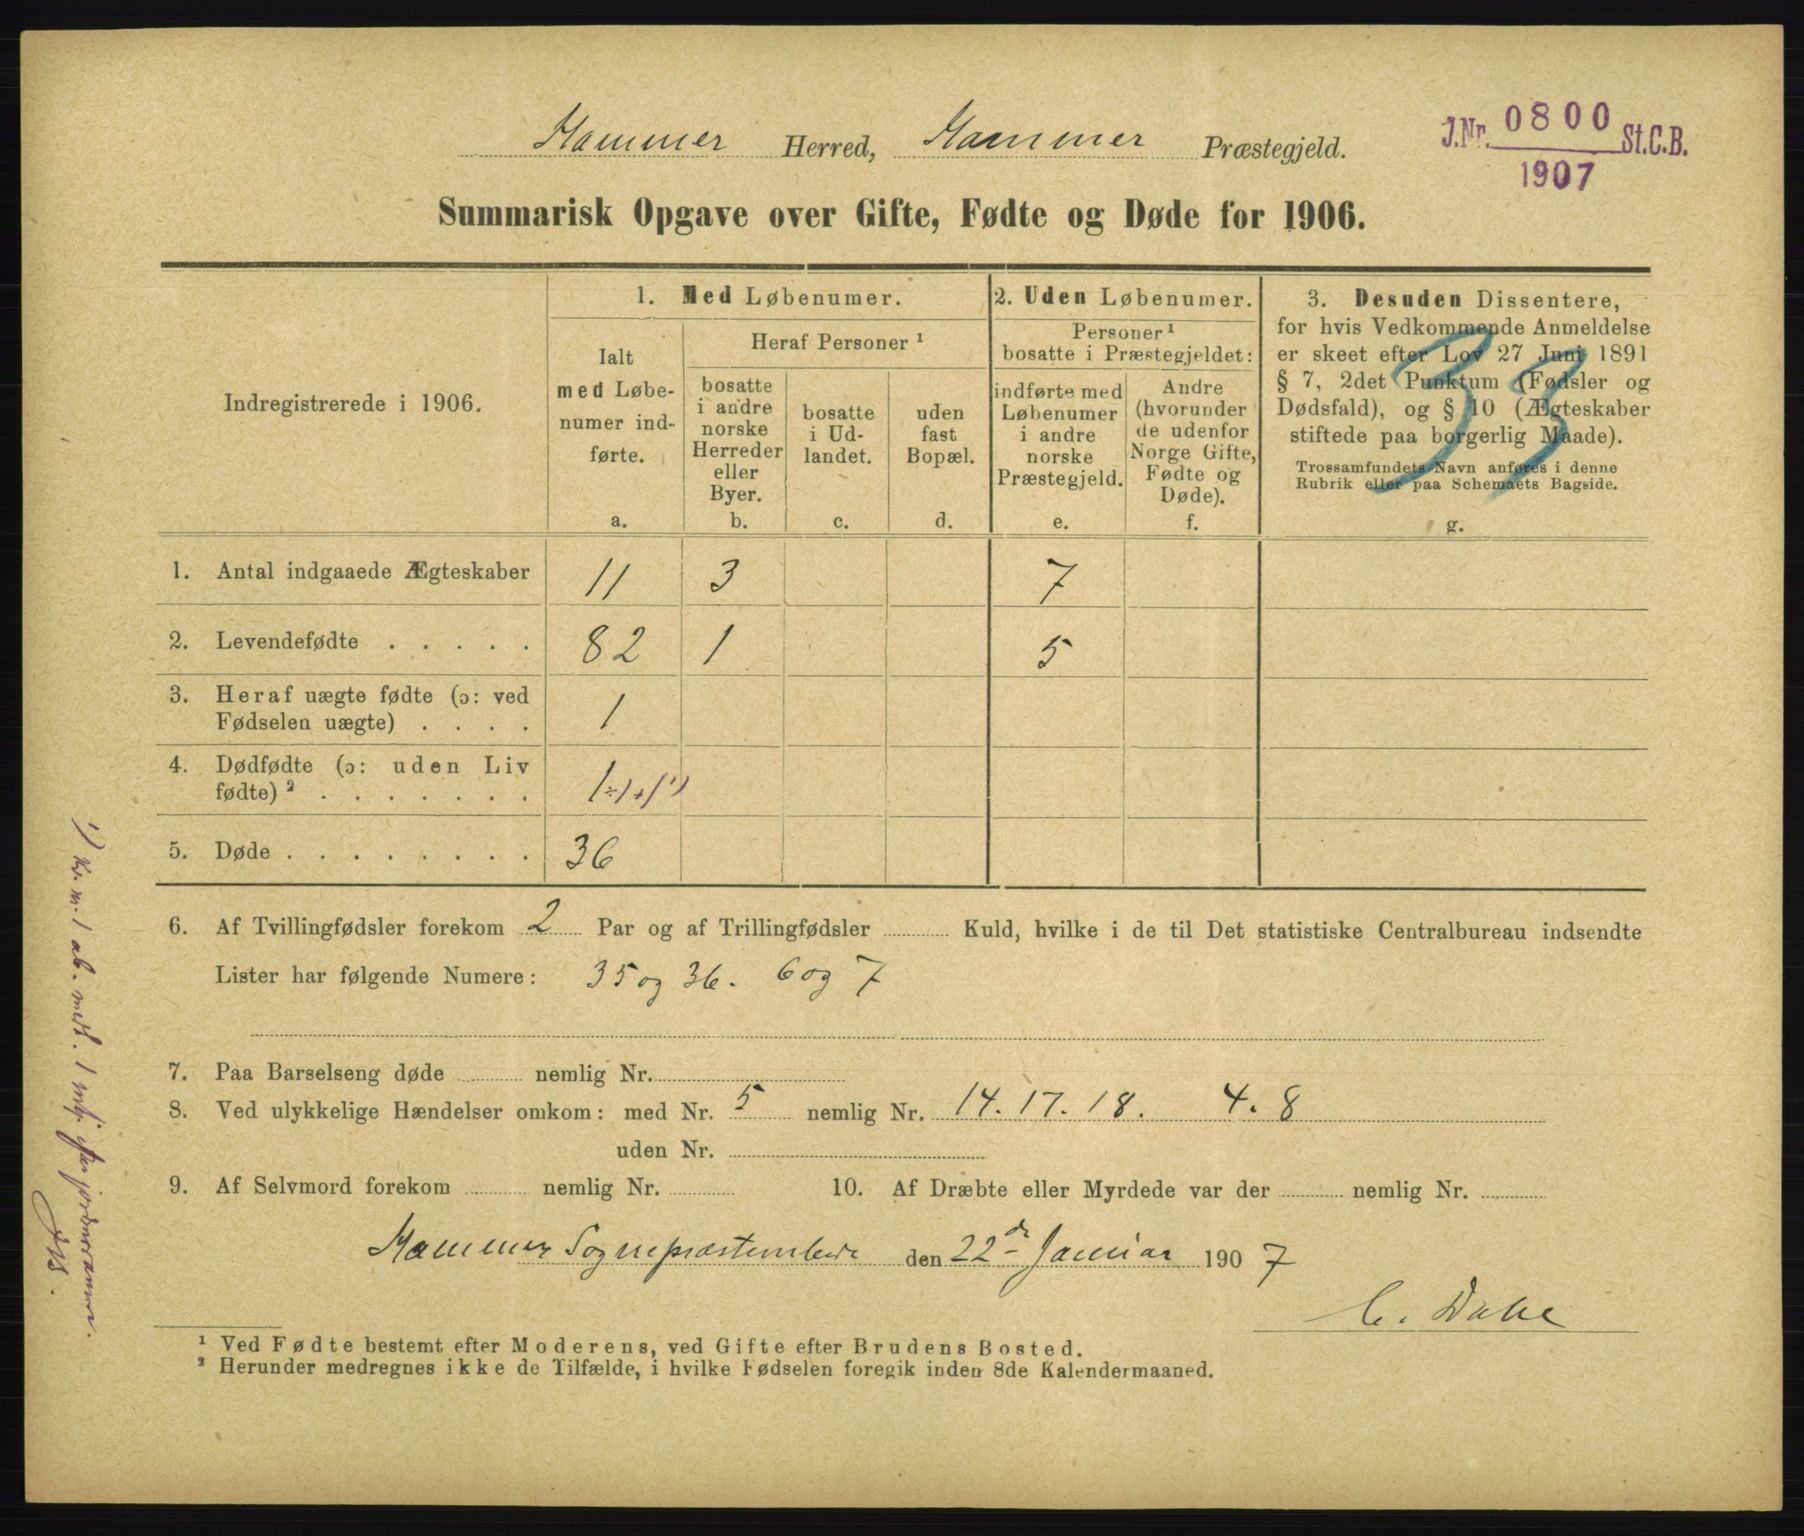 Hammer Herred, Hammer Præstegjeld.
J.Nr. 0800 St.C.B.
1907
Summarisk Opgave over Gifte, Fødte og Døde for 1906.
Indregistrerede i 1906.
1. Med Løbenumer.
Ialt
med Løbe-
numer ind-
førte.
a.
Heraf Personer ¹
bosatte
i andre
norske
Herreder
eller
Byer.
b.
bosatte
i Ud-
landet.
c.
uden
fast
Bopæl.
d.
2. Uden Løbenumer.
Personer ¹
bosatte i Præstegjeldet:
indførte med
Løbenumer
i andre
norske
Præstegjeld.
e.
Andre
(hvorunder
de udenfor
Norge Gifte,
Fødte og
Døde).
f.
3. Desuden Dissentere,
for hvis Vedkommende Anmeldelse
er skeet efter Lov 27 Juni 1891
§ 7, 2det Punktum (Fødsler og
Dødsfald), og § 10 (Ægteskaber
stiftede paa borgerlig Maade).
Trossamfundets Navn anføres i denne
Rubrik eller paa Schemaets Bagside.
g.
33
1. Antal indgaaede Ægteskaber 11 3 7
2. Levendefødte . . . . . 82 1 5
3. Heraf uægte fødte (ɔ: ved
Fødselen uægte) . . . . 1
4. Dødfødte (ɔ: uden Liv
fødte) ² . . . . . . . 1 ÷1+1 ¹)
5. Døde . . . . . . . . 36
6. Af Tvillingfødsler forekom 2 Par og af Trillingfødsler ........ Kuld, hvilke i de til Det statistiske Centralbureau indsendte
Lister har følgende Numere: 35 og 36. 6 og 7
7. Paa Barselseng døde ........ nemlig Nr.
8. Ved ulykkelige Hændelser omkom: med Nr. 5 nemlig Nr. 14. 17. 18. 4. 8
uden Nr.
9. Af Selvmord forekom ........ nemlig Nr. ........ 10. Af Dræbte eller Myrdede var der ........ nemlig Nr. ........
Hammer Sognepræstembede den 22de Januar 1907
C. Dahl
¹ Ved Fødte bestemt efter Moderens, ved Gifte efter Brudens Bosted.
² Herunder medregnes ikke de Tilfælde, i hvilke Fødselen foregik inden 8de Kalendermaaned.
¹) Kv. m. 1 ab. mdt. 1 jordmoranm.